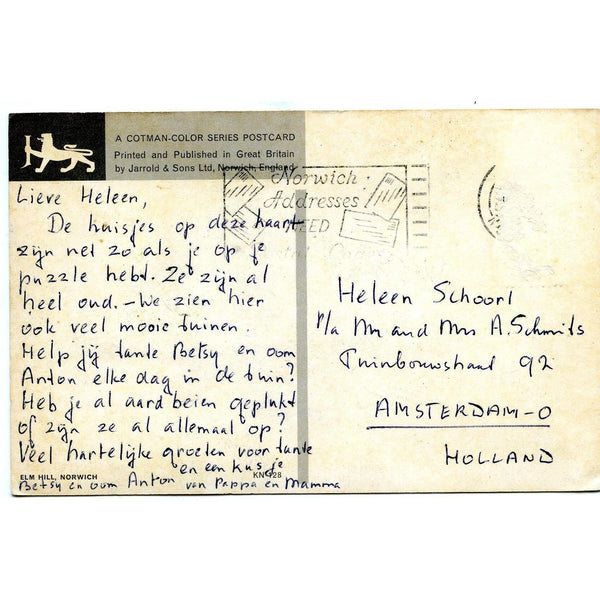 A COTMAN-COLOR SERIES POSTCARD
Printed and Published in Great Britain
by Jarrold & Sons Ltd, Norwich, England
Norwich
Addresses
NEED
Lieve Heleen,
De huisjes op deze kaart
zijn net zo als je op je
puzzle hebt. Ze zijn al
heel oud. - We zien hier
ook veel mooie tuinen.
Help jij tante Betsy en oom
Anton elke dag in de tuin?
Heb je al aardbeien geplukt
of zijn ze al allemaal op?
Veel hartelijke groeten voor tante
Betsy en oom Anton en een kus je
van Pappa en Mamma
ELM HILL, NORWICH
KNG28
Heleen Schoorl
p/a Mr and Mrs A. Schmits
Tuinbouwstraat 92
AMSTERDAM-O
HOLLAND